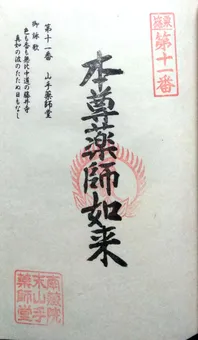 第十一番
本尊薬師如来
第十一番 山手薬師堂
御詠歌
色も香も無比中道の藤井寺
真如の波のたたぬ日もなし
南蔵院
末山手
薬師堂